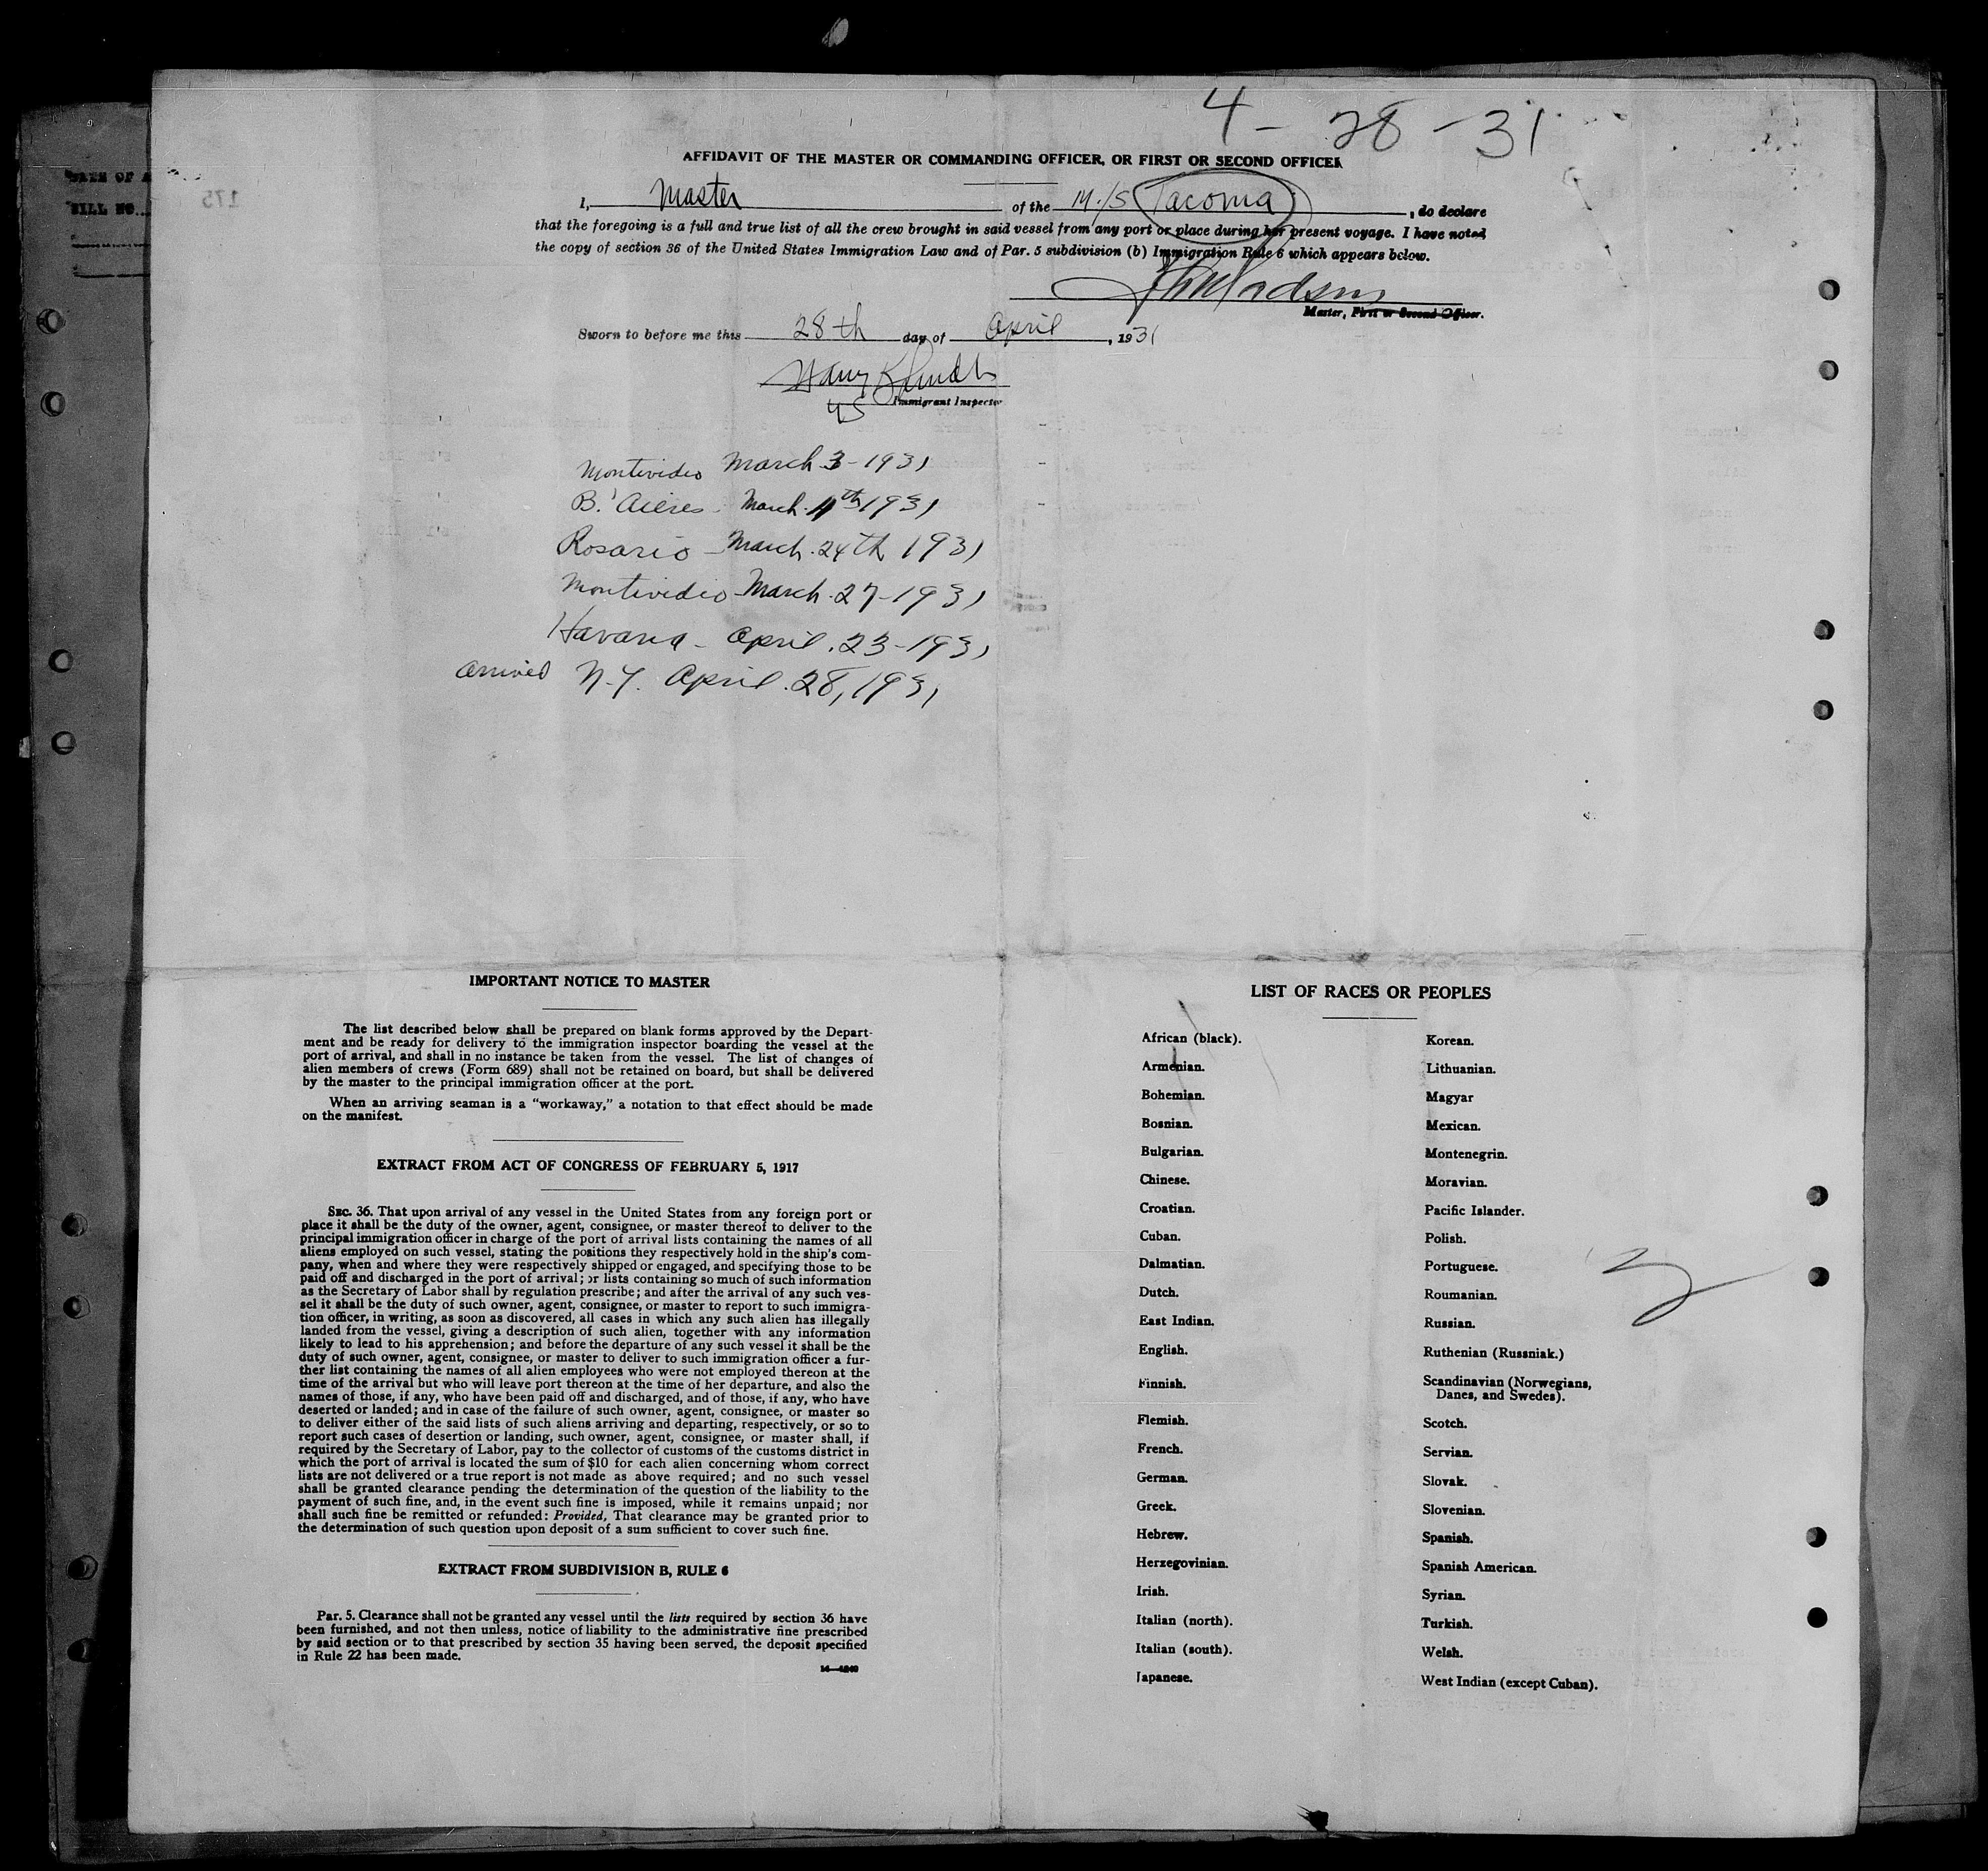 4-28-31
AFFIDAVIT OF THE MASTER OR COMMANDING OFFICER, OR FIRST OR SECOND OFFICER
I, Master of the M/S Tacoma, do declare
that the foregoing is a full and true list of all the crew brought in said vessel from any port or place during her present voyage. I have noted
the copy of section 36 of the United States Immigration Law and of Par. 5 subdivision (b) Immigration Rule 6 which appears below.
Madsen
Master, First or Second Officer.
Sworn to before me this 28th day of April, 1931
Harry
US Immigrant Inspector
Montevideo March 3-1931
B. Aeires - March 11th 1931
Rosario - March. 24th 1931
Montevideo - March. 27-1931
Havana - April. 23-1931
arrived N.Y. April. 28, 1931
DATE OF
BILL NO.
175
IMPORTANT NOTICE TO MASTER
The list described below shall be prepared on blank forms approved by the Depart-
ment and be ready for delivery to the immigration inspector boarding the vessel at the
port of arrival, and shall in no instance be taken from the vessel. The list of changes of
alien members of crews (Form 689) shall not be retained on board, but shall be delivered
by the master to the principal immigration officer at the port.
When an arriving seaman is a "workaway," a notation to that effect should be made
on the manifest.
EXTRACT FROM ACT OF CONGRESS OF FEBRUARY 5, 1917
SEC. 36. That upon arrival of any vessel in the United States from any foreign port or
place it shall be the duty of the owner, agent, consignee, or master thereof to deliver to the
principal immigration officer in charge of the port of arrival lists containing the names of all
aliens employed on such vessel, stating the positions they respectively hold in the ship's com-
pany, when and where they were respectively shipped or engaged, and specifying those to be
paid off and discharged in the port of arrival; or lists containing so much of such information
as the Secretary of Labor shall by regulation prescribe; and after the arrival of any such ves-
sel it shall be the duty of such owner, agent, consignee, or master to report to such immigra-
tion officer, in writing, as soon as discovered, all cases in which any such alien has illegally
landed from the vessel, giving a description of such alien, together with any information
likely to lead to his apprehension; and before the departure of any such vessel it shall be the
duty of such owner, agent, consignee, or master to deliver to such immigration officer a fur-
ther list containing the names of all alien employees who were not employed thereon at the
time of the arrival but who will leave port thereon at the time of her departure, and also the
names of those, if any, who have been paid off and discharged, and of those, if any, who have
deserted or landed; and in case of the failure of such owner, agent, consignee, or master so
to deliver either of the said lists of such aliens arriving and departing, respectively, or so to
report such cases of desertion or landing, such owner, agent, consignee, or master shall, if
required by the Secretary of Labor, pay to the collector of customs of the customs district in
which the port of arrival is located the sum of $10 for each alien concerning whom correct
lists are not delivered or a true report is not made as above required; and no such vessel
shall be granted clearance pending the determination of the question of the liability to the
payment of such fine, and, in the event such fine is imposed, while it remains unpaid; nor
shall such fine be remitted or refunded: Provided, That clearance may be granted prior to
the determination of such question upon deposit of a sum sufficient to cover such fine.
EXTRACT FROM SUBDIVISION B, RULE 6
Par. 5. Clearance shall not be granted any vessel until the lists required by section 36 have
been furnished, and not then unless, notice of liability to the administrative fine prescribed
by said section or to that prescribed by section 35 having been served, the deposit specified
in Rule 22 has been made.
LIST OF RACES OR PEOPLES
African (black).
Armenian.
Bohemian.
Bosnian.
Bulgarian.
Chinese.
Croatian.
Cuban.
Dalmatian.
Dutch.
East Indian.
English.
Finnish.
Flemish.
French.
German.
Greek.
Hebrew.
Herzegovinian.
Irish.
Italian (north).
Italian (south).
Japanese.
Korean.
Lithuanian.
Magyar
Mexican.
Montenegrin.
Moravian.
Pacific Islander.
Polish.
Portuguese.
Roumanian.
Russian.
Ruthenian (Russniak.)
Scandinavian (Norwegians,
Danes, and Swedes).
Scotch.
Servian.
Slovak.
Slovenian.
Spanish.
Spanish American.
Syrian.
Turkish.
Welsh.
West Indian (except Cuban).